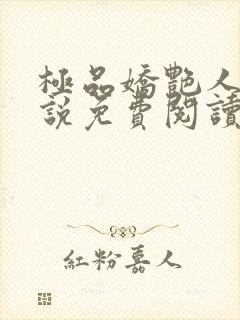 極品嬌艷人
說免費閱讀
紅粉嘉人